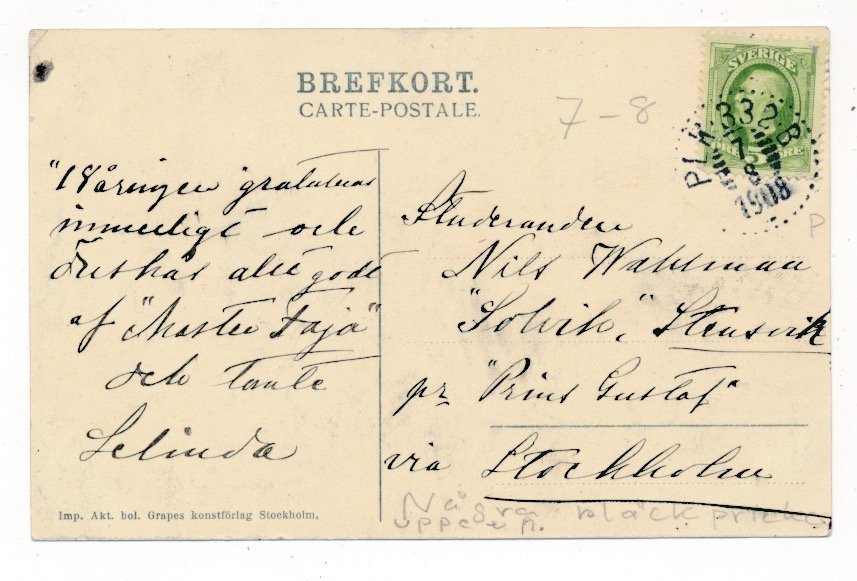 BREFKORT.
CARTE-POSTALE.
7-8
SVERIGE
PLK 332 B
7 8
1908
"18åringen gratuleras
innerligt och
önskas allt godt
af "Moster Faja"
och tante
Selinda
Studeranden
Nils Wahlman
"Solvik", Stensvik
pr "Prins Gustaf"
via Stockholm
Några bläckprickar
uppe t.
P
P
Imp. Akt. bol. Grapes konstförlag Stockholm.